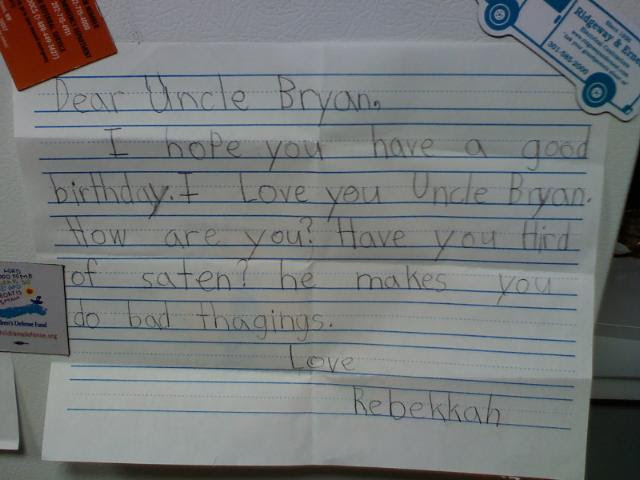 Dear Uncle Bryan.
I hope you have a good
birthday. I Love you Uncle Bryan.
How are you? Have you Hird
of saten? he makes you
do bad thagings.
Love
Rebekkah
Ridgeway &
301-565-2050
Children's Defense Fund